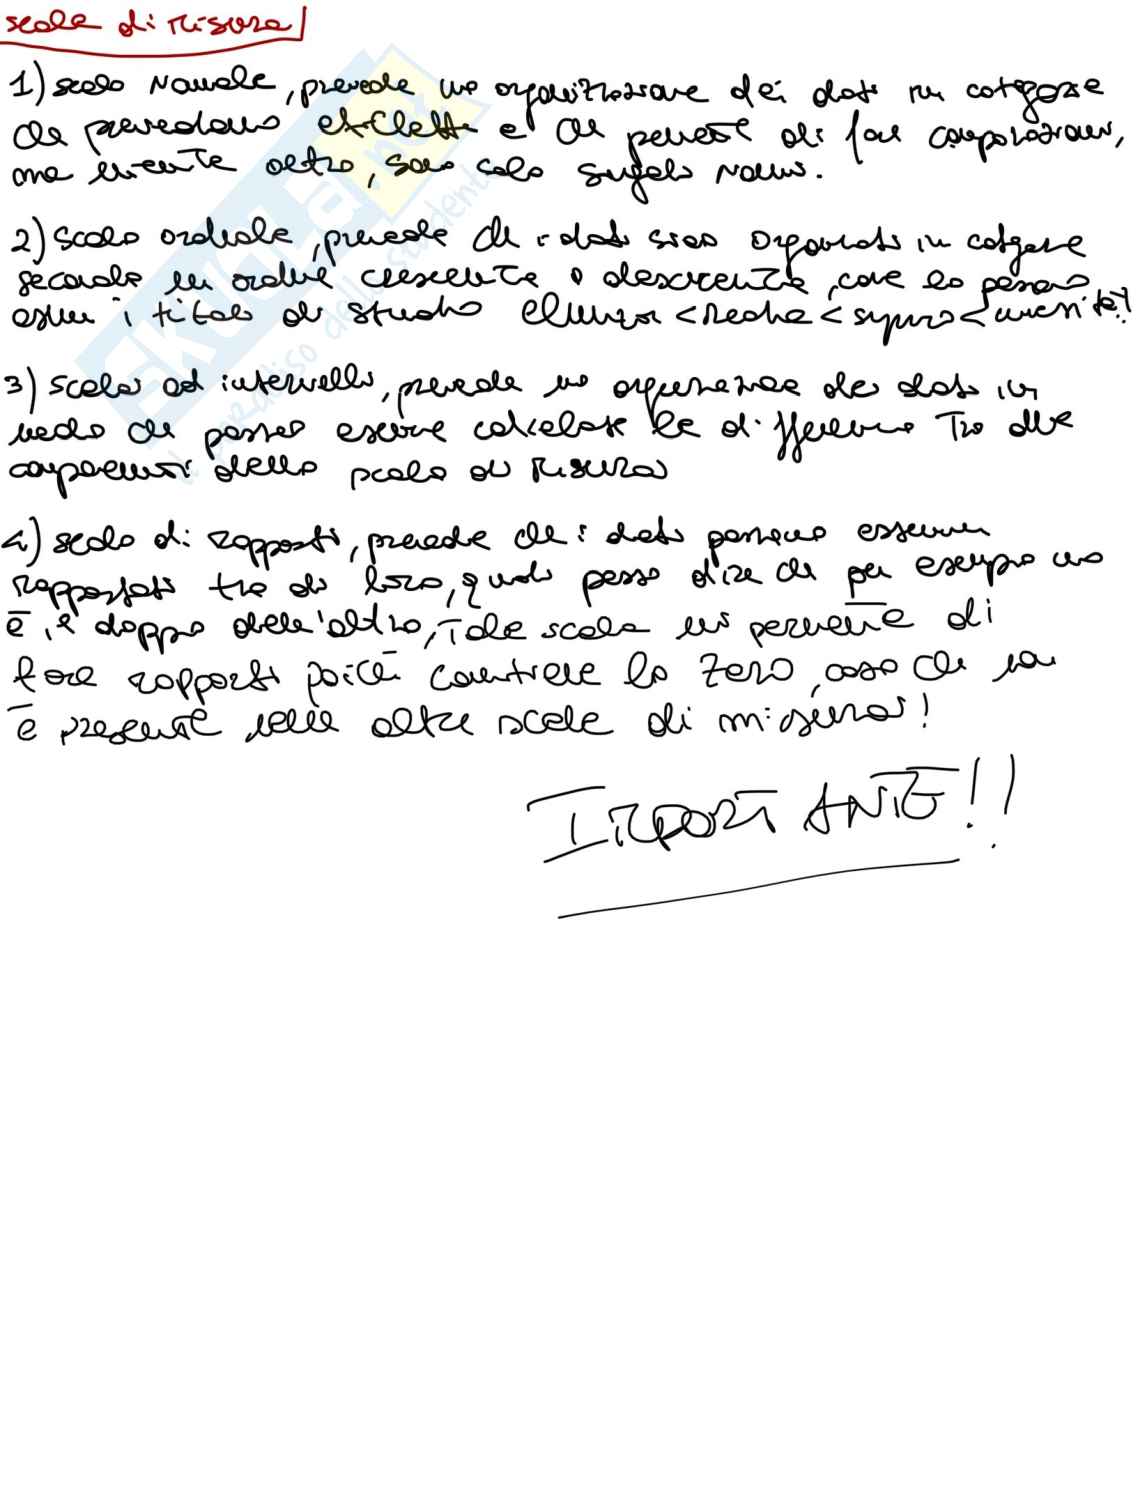 scale di misura
1) scala Nominale, prevede una organizzazione dei dati in categorie
che prevedono etichette e che permette di fare comparazioni,
ma niente altro, sono solo singoli nomi.
2) scala ordinale, prevede che i dati siano organizzati in categorie
secondo un ordine crescente o decrescente, come lo possono
essere i titoli di studio elementari < medie < superiori < università!!
3) scala ad intervalli, prevede una organizzazione dei dati in
modo che possano essere calcolate le differenze tra due
componenti della scala di misura
4) scala di rapporti, prevede che i dati possono essere
rapportati tra di loro, quindi posso dire che per esempio uno
è il doppio dell'altro, Tale scala mi permette di
fare rapporti poiché contiene lo zero, cosa che non
è presente nelle altre scale di misura!
IMPORTANTE!!
SKUOLA.net
il paradiso dello studente